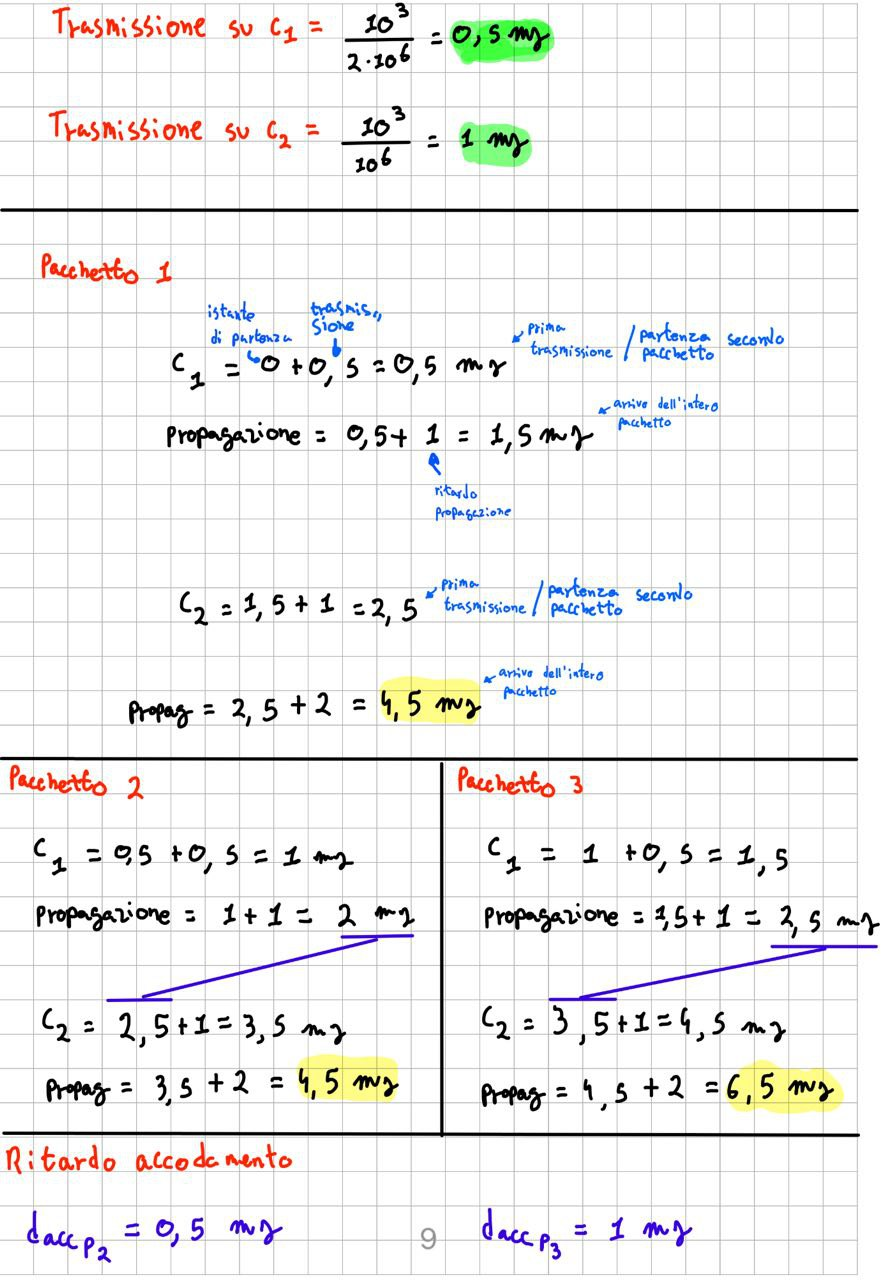 Trasmissione su C1 = 10^3 / 2·10^6 = 0,5 ms
Trasmissione su C2 = 10^3 / 10^6 = 1 ms
Pacchetto 1
istante di partenza
trasmis,, sione
C1 = 0 + 0,5 = 0,5 ms
prima trasmissione / partenza secondo pacchetto
Propagazione = 0,5 + 1 = 1,5 ms
arrivo dell'intero pacchetto
ritardo propagazione
C2 = 1,5 + 1 = 2,5
prima trasmissione / partenza secondo pacchetto
Propag = 2,5 + 2 = 4,5 ms
arrivo dell'intero pacchetto
Pacchetto 2
C1 = 0,5 + 0,5 = 1 ms
Propagazione = 1 + 1 = 2 ms
C2 = 2,5 + 1 = 3,5 ms
Propag = 3,5 + 2 = 4,5 ms
Pacchetto 3
C1 = 1 + 0,5 = 1,5
Propagazione = 1,5 + 1 = 2,5 ms
C2 = 3,5 + 1 = 4,5 ms
Propag = 4,5 + 2 = 6,5 ms
Ritardo accodamento
dacc P2 = 0,5 ms
dacc P3 = 1 ms
9